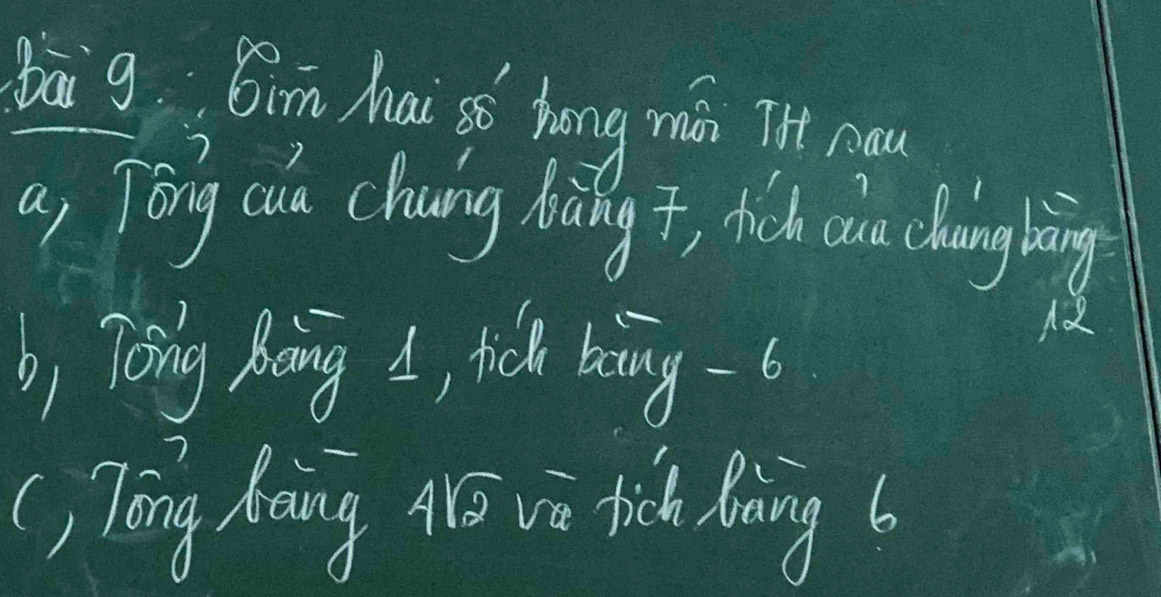 Bài 9: Tìm hai số trong mỗi TH sau
a, Tổng của chúng bằng 7, tích của chúng bằng
12
b, Tổng bằng 1, tích bằng -6.
c, Tổng bằng 4√2 và tích bằng 6